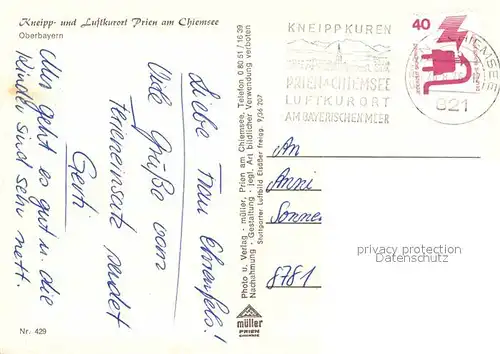 Kneipp- und Luftkurort Prien am Chiemsee
Oberbayern
Liebe Frau Ehrenfels!
Viele Grüße vom
Ferieneinsatz sendet
Gerti
Uns geht es gut u. die
Kinder sind sehr nett.
Nr. 429
Photo u. Verlag - müller, Prien am Chiemsee, Telefon 0 80 51 / 16 39
Nachahmung - Gestaltung - jegl. Art bildlicher Verwendung verboten
Stuttgarter Luftbild Elsäßer freigg. 9/06 207
müller
PRIEN
CHIEMSEE
KNEIPPKUREN
PRIEN A CHIEMSEE
LUFTKURORT
AM BAYERISCHEN MEER
40
CHIEMSEE
821
An
Anni
Sonne
8781
privacy protection
Datenschutz